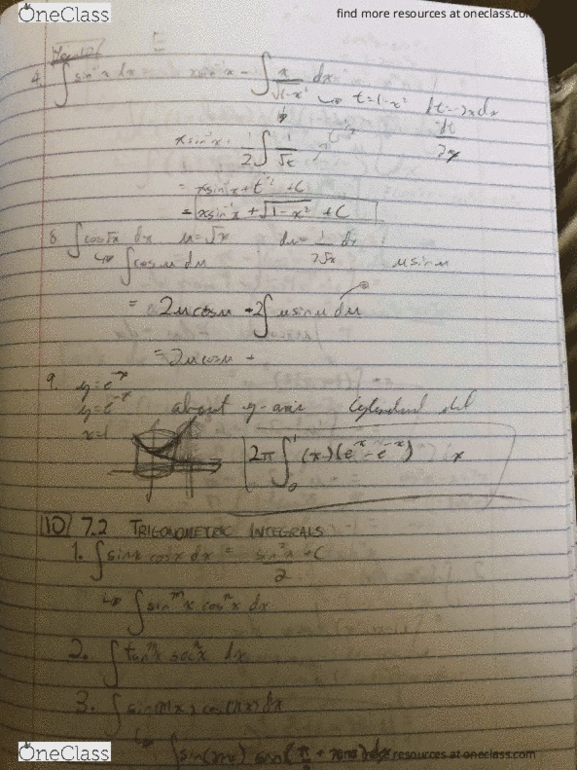 OneClass
find more resources at oneclass.com
4. ∫ sin⁻¹x dx = x sin⁻¹x − ∫ x/√(1−x²) dx
t=1−x² dt=−2xdx
x sin⁻¹x + 1/2 ∫ 1/√t
= x sin⁻¹x + t^(1/2) + C
= x sin⁻¹x + √(1−x²) + C
8. ∫ cos√x dx u=√x du= 1/(2√x) dx
∫ cos u du u sin u
= 2u cos u + 2∫ u sin u du
= 2u cos u +
9. y=e^(-x)
x=1
about y-axis
2π ∫₀¹ (x)(e^x − e^(-x)) x
110 7.2 TRIGONOMETRIC INTEGRALS
1. ∫ sin x cos x dx = sin²x/2 + C
↳ ∫ sin^m x cos^n x dx
2. ∫ tan^m x sec^n x dx
3. ∫ sin(mx) cos(nx) dx
OneClass
find more resources at oneclass.com